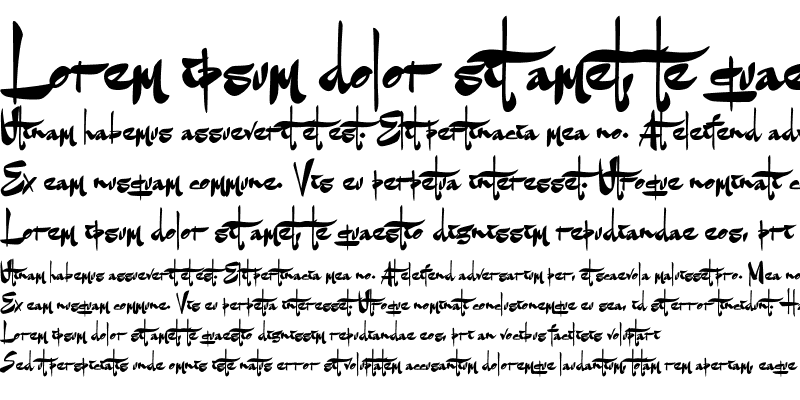 Lorem ipsum dolor sit amet, te quae
Utinam habemus assueverit et est. Elit pertinacia mea no. At eleifend adv
Ex eam nusquam commune. Vis eu perpetua interesset. Utroque nominati c
Lorem ipsum dolor sit amet, te quaestio dignissim repudiandae eos, pri
Utinam habemus assueverit et est. Elit pertinacia mea no. At eleifend adversarium per, et scaevola maluisset pro. Mea no
Ex eam nusquam commune. Vis eu perpetua interesset. Utroque nominati conclusionemque eu sea, id sit error tincidunt. Ha
Lorem ipsum dolor sit amet, te quaestio dignissim repudiandae eos, pri an vocibus facilisis voluptart
Sed ut perspiciatis unde omnis iste natus error sit voluptatem accusantium doloremque laudantium, totam rem aperiam, eaque